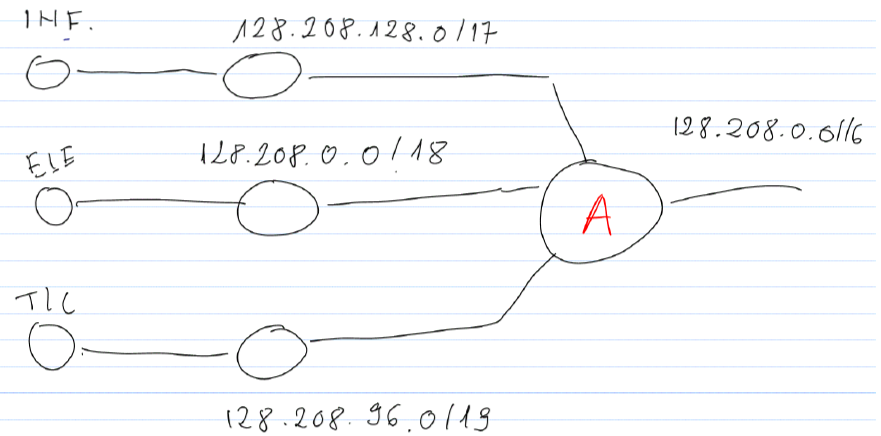 INF.
128.208.128.0/17
128.208.0.0/16
ELE
128.208.0.0/18
A
TLC
128.208.96.0/19